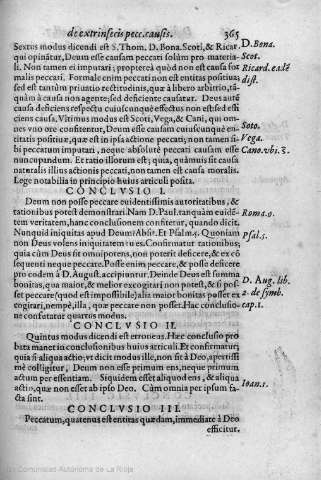 de extrinsecis pecc. causis. 365
Sextus modus dicendi est S. Thom. D. Bona. Scoti, & Ricar D. Bona.
qui opinātur, Deum esse causam peccati solùm pro materia- Scot.
li. Non tamen ei imputari; proptereà quòd non est causa for Ricard. eadē
malis peccati. Formale enim peccati non est entitas positiua; dist.
sed est tantùm priuatio rectitudinis, quæ à libero arbitrio, tā-
quàm à causa non agente; sed deficiente causatur. Deus autē
causa deficiens respectu cuiuscunque effectus nõ est; sed effi
ciens causa. Vltimus modus est Scoti, Vega, & Cani, qui om-
nes vno ore confitentur, Deum esse causam cuiuscunque en- Soto.
titatis positiuæ, quæ est in ipsa actione peccati; non tamen si- Vega.
bi peccatum imputari, neque absolutè peccati causam esse Cano. vbi. 3.
nuncupandum. Et ratio illorum est; quia, quāmuis sit causa
naturalis illius actionis peccati, non est tamen causa moralis.
Lege notabilia in principio huius articuli posita.
CONCLVSIO I.
Deum non posse peccare euidentissimis autoritatibus, &
rationibus potest demonstrari. Nam D. Paul. tanquàm euidē- Roma. 9.
tem veritatem, hanc conclusionem confitetur, quando dicit.
Nunquid iniquitas apud Deum? Absit. Et Psalm. 5. Quoniam
non Deus volens iniquitatem tu es. Confirmatur rationibus, Psal. 5.
quia cùm Deus sit omnipotens, non poterit deficere, & ex cõ
sequenti neque peccare. Posse enim peccare, & posse deficere
pro eodem à D. August. accipiuntur. Deinde Deus est summa D. Aug. lib.
bonitas, qua maior, & melior excogitari non potest, & si pos- 2. de symb.
set peccare (quod est impossibile) alia maior bonitas posset ex
cogitari, nempè, illa, quæ peccare non posset. Hæc conclusio- cap. 1.
ne confutatur quartus modus.
CONCLVSIO II.
Quintus modus dicendi est erroneus. Hæc conclusio pro
bata manet in conclusionibus huius articuli. Et confirmatur;
quia si aliqua actio, vt dicit modus ille, non sit à Deo, apertissi
mè colligitur, Deum non esse primum ens, neque primum
actum per essentiam. Siquidem esset aliquod ens, & aliqua
actio, quæ non esset ab ipso Deo. Cùm omnia per ipsum fa- Ioan. 1.
cta sint.
CONCLVSIO III.
Peccatum, quatenus est entitas quædam, immediatè à Deo
efficitur.
Comunidad Autónoma de La Rioja